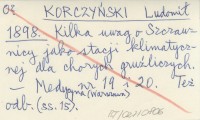 Oz
KORCZYŃSKI Ludomił
1898. Kilka uwag o Szczaw-
nicy jako stacji klimatycz-
nej dla chorych gruźliczych.
— Medycyna nr 19 i 20. Też
(Warszawa)
odb. (ss. 15).